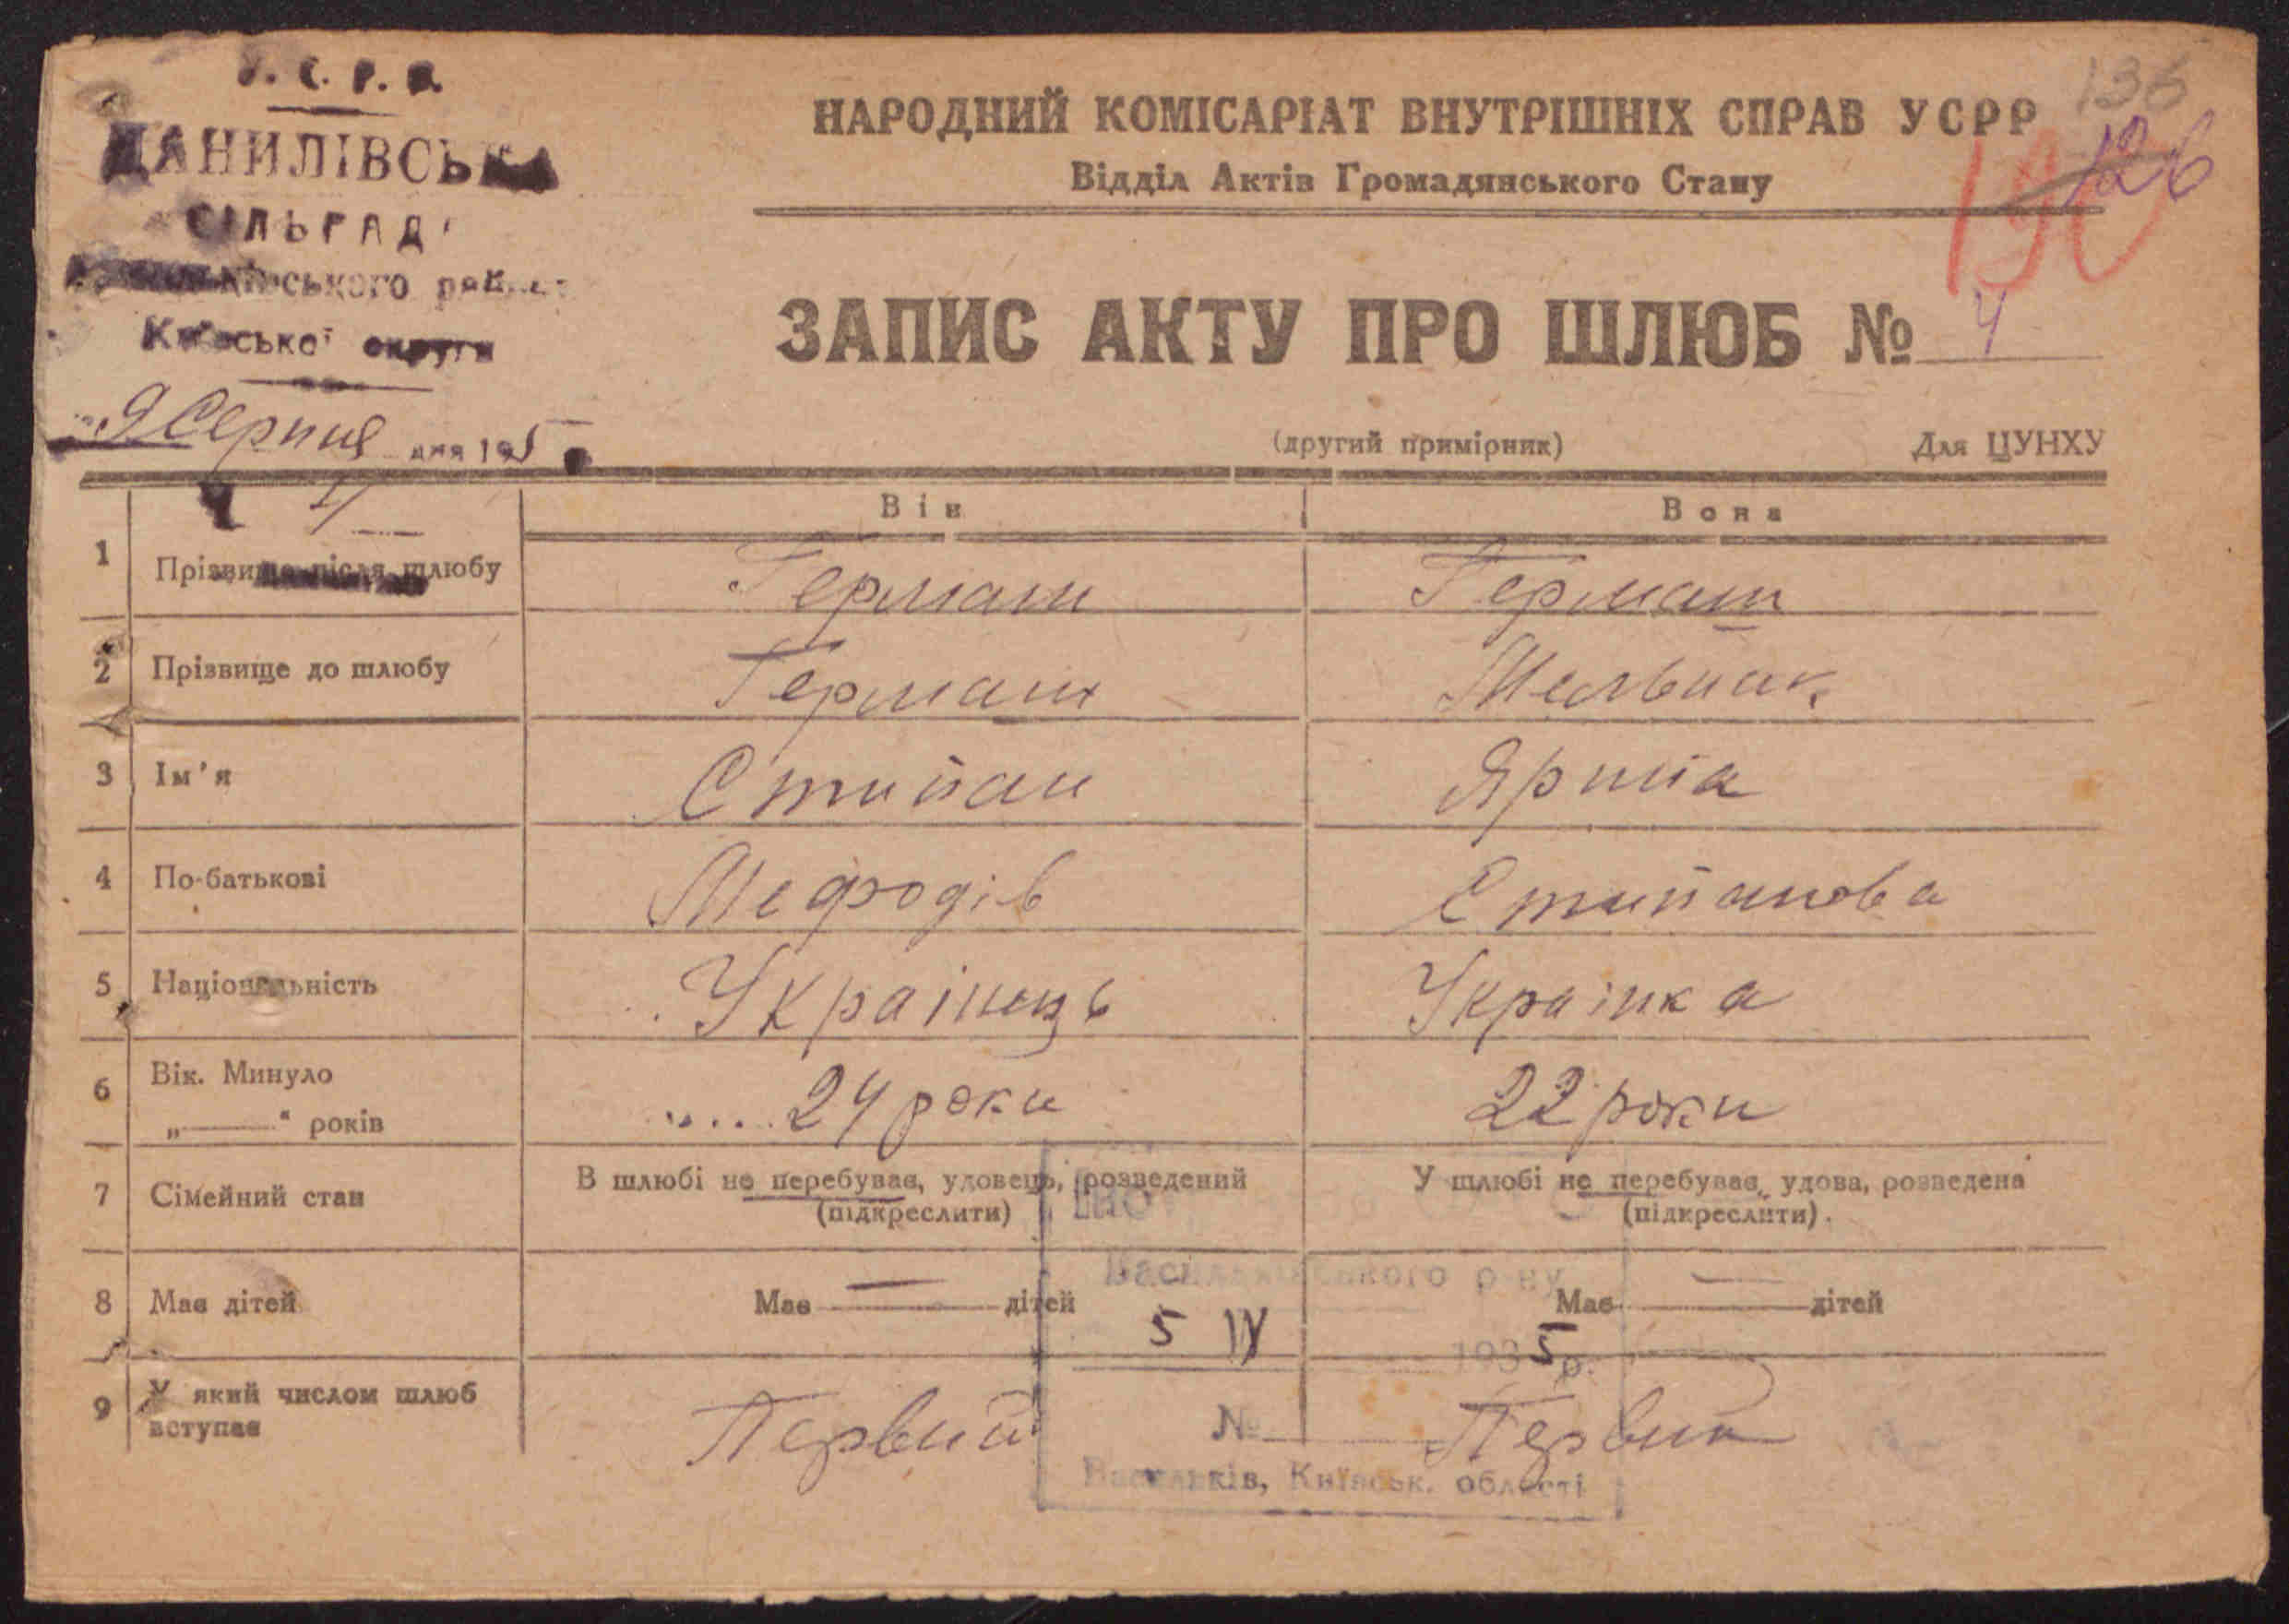 У. С. Р. Р.
ДАНИЛІВСЬКА
СІЛЬРАДА
Васильківського району
Київської округи
9 Серпня дня 1935
4
НАРОДНИЙ КОМІСАРІАТ ВНУТРІШНІХ СПРАВ УСРР
Відділ Актів Громадянського Стану
136
126
190
ЗАПИС АКТУ ПРО ШЛЮБ № 4
(другий примірник) Для ЦУНХУ
Він Вона
1 Прізвище після шлюбу Герман Герман
2 Прізвище до шлюбу Герман Мельник
3 Ім'я Стипан Ярина
4 По-батькові Мефодів Стипанова
5 Національність Українець Українка
6 Вік. Минуло
„——" років 24 роки 22 роки
7 Сімейний стан В шлюбі не перебував, удовець, розведений У шлюбі не перебував, удова, розведена
(підкреслити) (підкреслити)
Васильківського р-ну
8 Має дітей Має — дітей Має — дітей
5 IX 1935 р.
9 У який числом шлюб
вступає Первий Первий
№
Васильків, Київськ. області